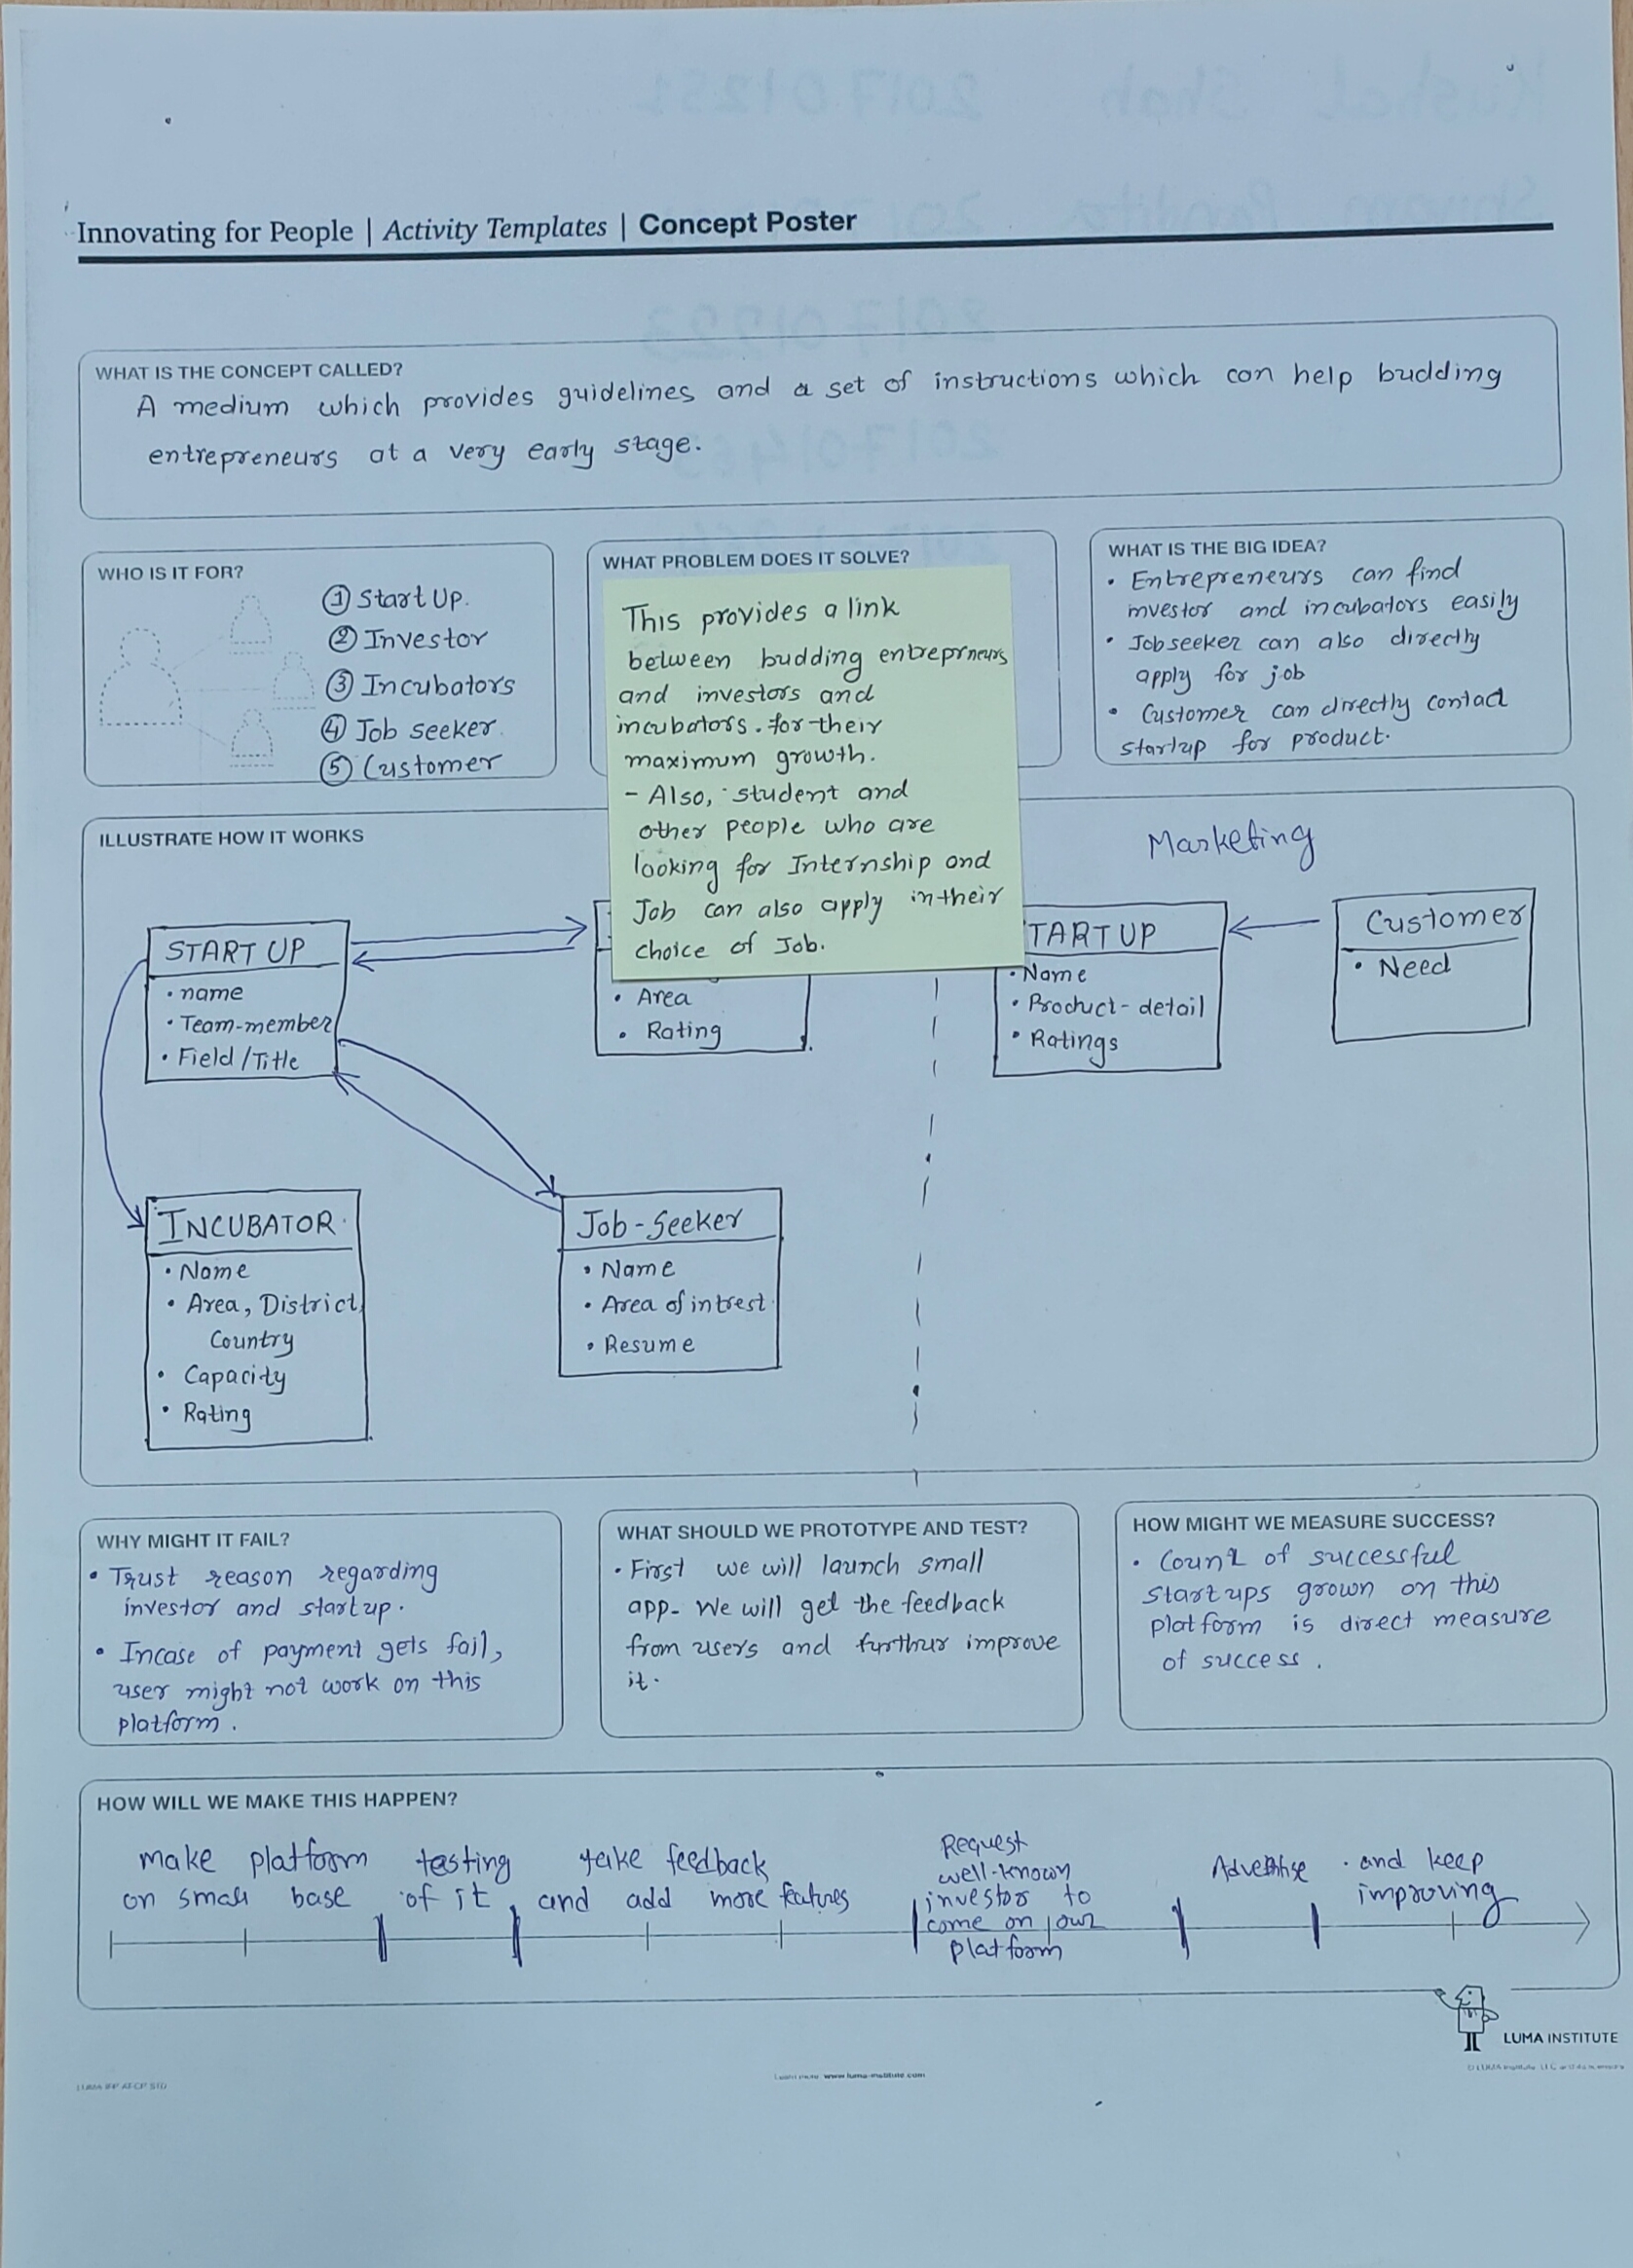 Innovating for People | Activity Templates | Concept Poster
WHAT IS THE CONCEPT CALLED?
A medium which provides guidelines and a set of instructions which can help budding
entrepreneurs at a very early stage.
WHO IS IT FOR?
① Start Up.
② Investor
③ Incubators
④ Job seeker
⑤ Customer
WHAT PROBLEM DOES IT SOLVE?
This provides a link
between budding entreprneurs
and investors and
incubators. for their
maximum growth.
- Also, student and
other people who are
looking for Internship and
Job can also apply in their
choice of Job.
WHAT IS THE BIG IDEA?
• Entrepreneurs can find
investor and incubators easily
• Jobseeker can also directly
apply for job
• Customer can directly contact
startup for product.
ILLUSTRATE HOW IT WORKS
Marketing
START UP
• name
• Team-member
• Field/Title
• Area
• Rating
TARTUP
• Name
• Product-detail
• Ratings
Customer
• Need
INCUBATOR
• Name
• Area, District,
Country
• Capacity
• Rating
Job-Seeker
• Name
• Area of intrest
• Resume
WHY MIGHT IT FAIL?
• Trust reason regarding
investor and startup.
• Incase of payment gets fail,
user might not work on this
platform.
WHAT SHOULD WE PROTOTYPE AND TEST?
• First we will launch small
app- We will get the feedback
from users and furthur improve
it.
HOW MIGHT WE MEASURE SUCCESS?
• Count of successful
startups grown on this
platform is direct measure
of success.
HOW WILL WE MAKE THIS HAPPEN?
make platform
on small base
testing
of it
take feedback
and add more features
Request
well-known
investor to
come on our
platform
Advertise
• and keep
improving
LUMA INSTITUTE
Learn more www.luma-institute.com